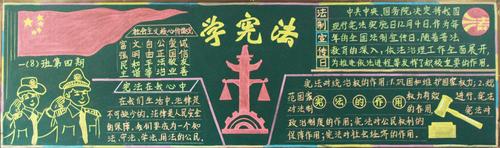 一(8)班第四期
社会主义核心价值观
富强民主
文明和谐
自由平等
公正法治
爱国敬业
诚信友善
宪法在我心中
在我们生活中,法律是
不可缺少的,法律是人民安全
的保障,我们要成为一个知
法、守法、学法、用法的公民。
学宪法
法制宣传日
中共中央、国务院决定将我国
现行宪法实施日12月4日,作为每
年的全国法制宣传日,随着普法
教育的深入,依法治理工作全面展开,
宪法的作用
宪法对统治权的作用:1.巩固和维护国家权力;2.规
范国家权力有效进行.宪法
对法制的作用宪法对
政治制度的作用;宪法对公民权利的
保障作用;宪法对社会经济的作用。